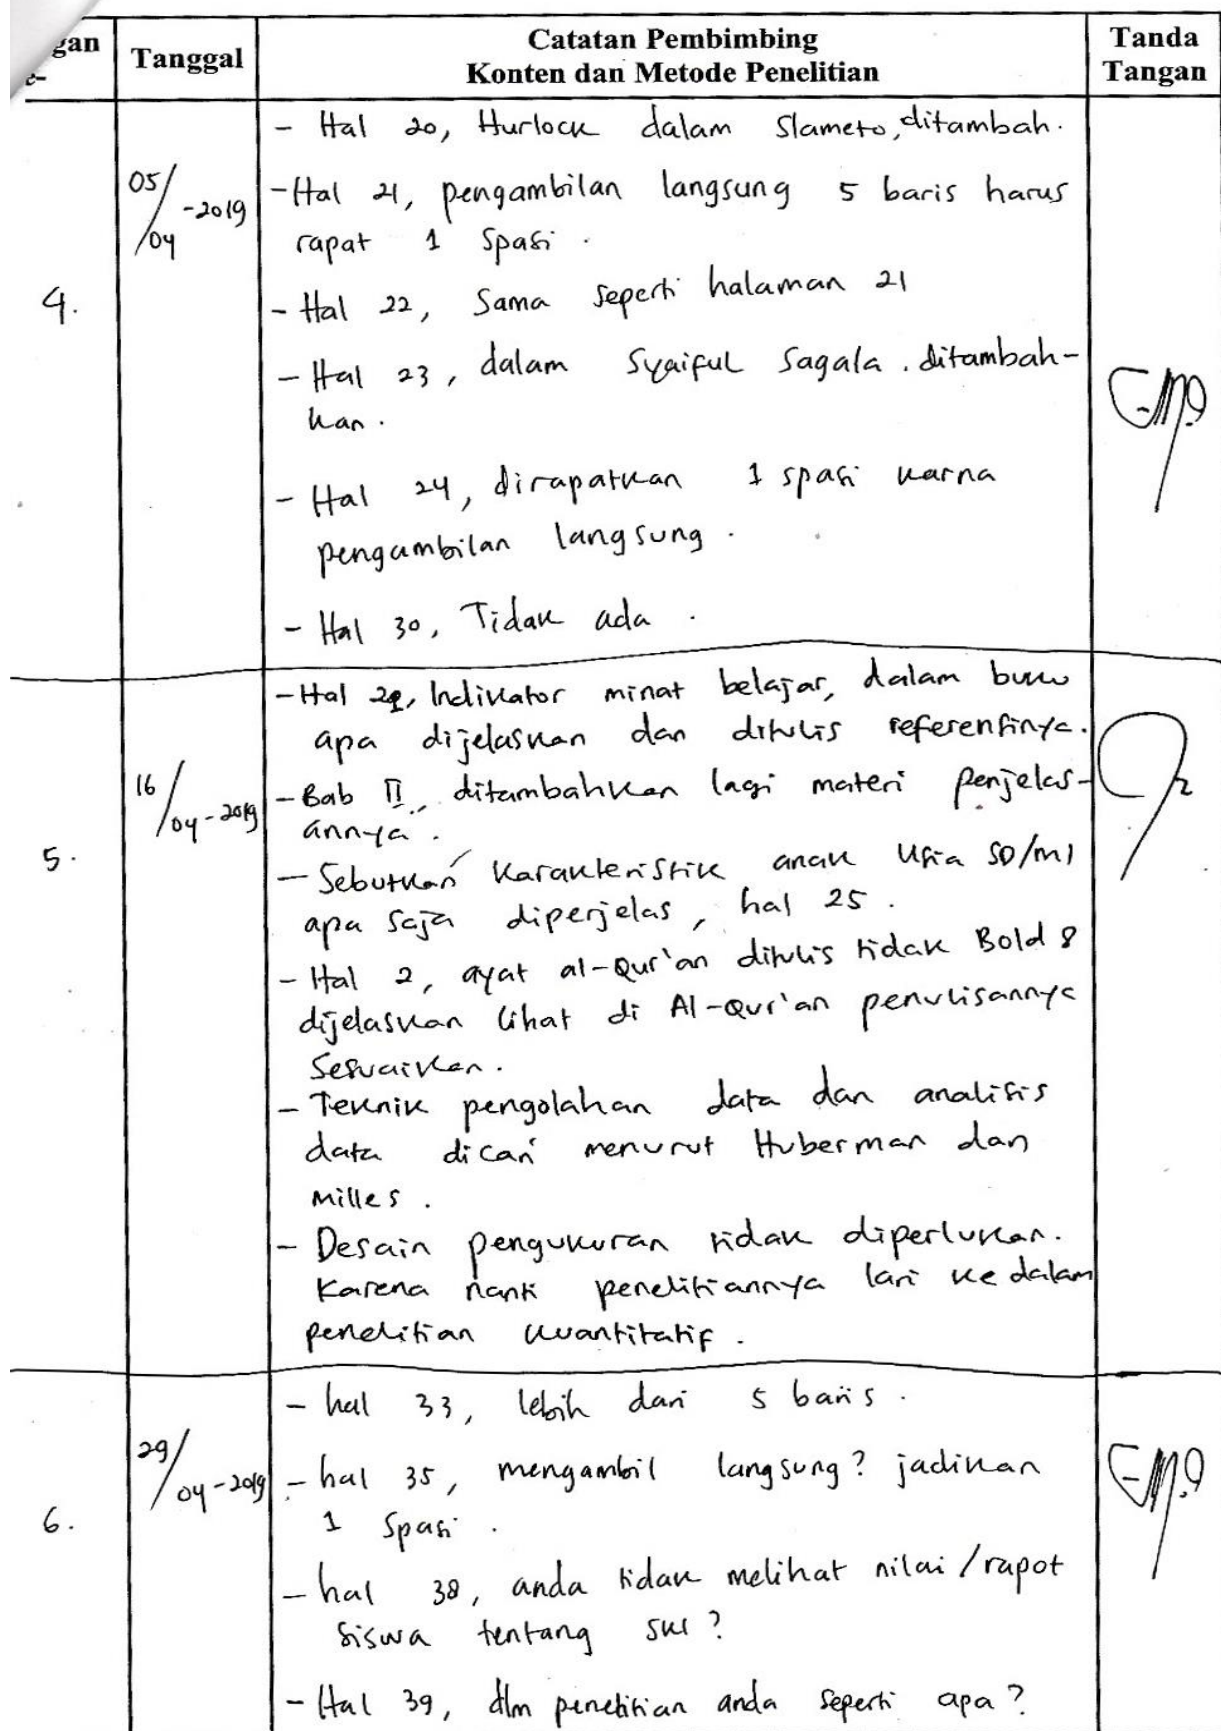 gan
e-
Tanggal
Catatan Pembimbing
Konten dan Metode Penelitian
Tanda
Tangan
4.
05/04-2019
- Hal 20, Hurlock dalam Slameto, ditambah.
- Hal 21, pengambilan langsung 5 baris harus
rapat 1 spasi.
- Hal 22, Sama seperti halaman 21
- Hal 23, dalam Syaiful Sagala. ditambah-
kan.
- Hal 24, dirapatkan 1 spasi karna
pengambilan langsung.
- Hal 30, Tidak ada.
5.
16/04-2019
- Hal Indikator minat belajar, dalam buku
apa dijelaskan dan ditulis referensinya.
- Bab II, ditambahkan lagi materi penjelas-
annya.
- Sebutkan karakteristik anak usia SD/MI
apa saja diperjelas, hal 25.
- Hal 2, ayat al-Qur'an ditulis tidak Bold &
dijelaskan lihat di Al-Qur'an penulisannya
Sesuaikan.
- Teknik pengolahan data dan analisis
data dicari menurut Huberman dan
Milles.
- Desain pengukuran tidak diperlukan.
Karena nanti penelitiannya lari ke dalam
penelitian kuantitatif.
6.
29/04-2019
- hal 33, lebih dari 5 baris.
- hal 35, mengambil langsung? jadikan
1 Spasi.
- hal 38, anda tidak melihat nilai/rapot
siswa tentang SKI?
- Hal 39, dlm penelitian anda seperti apa?